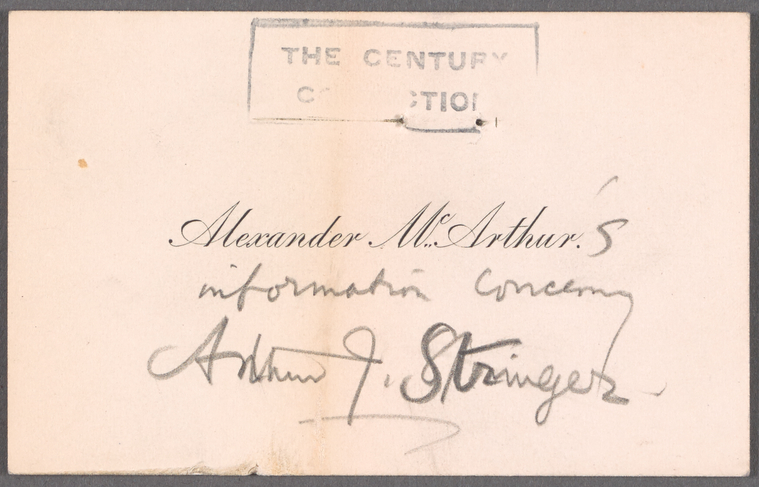 THE CENTURY
COLLECTION
Alexander McArthur.'s
information concerning
Arthur J. Stringer